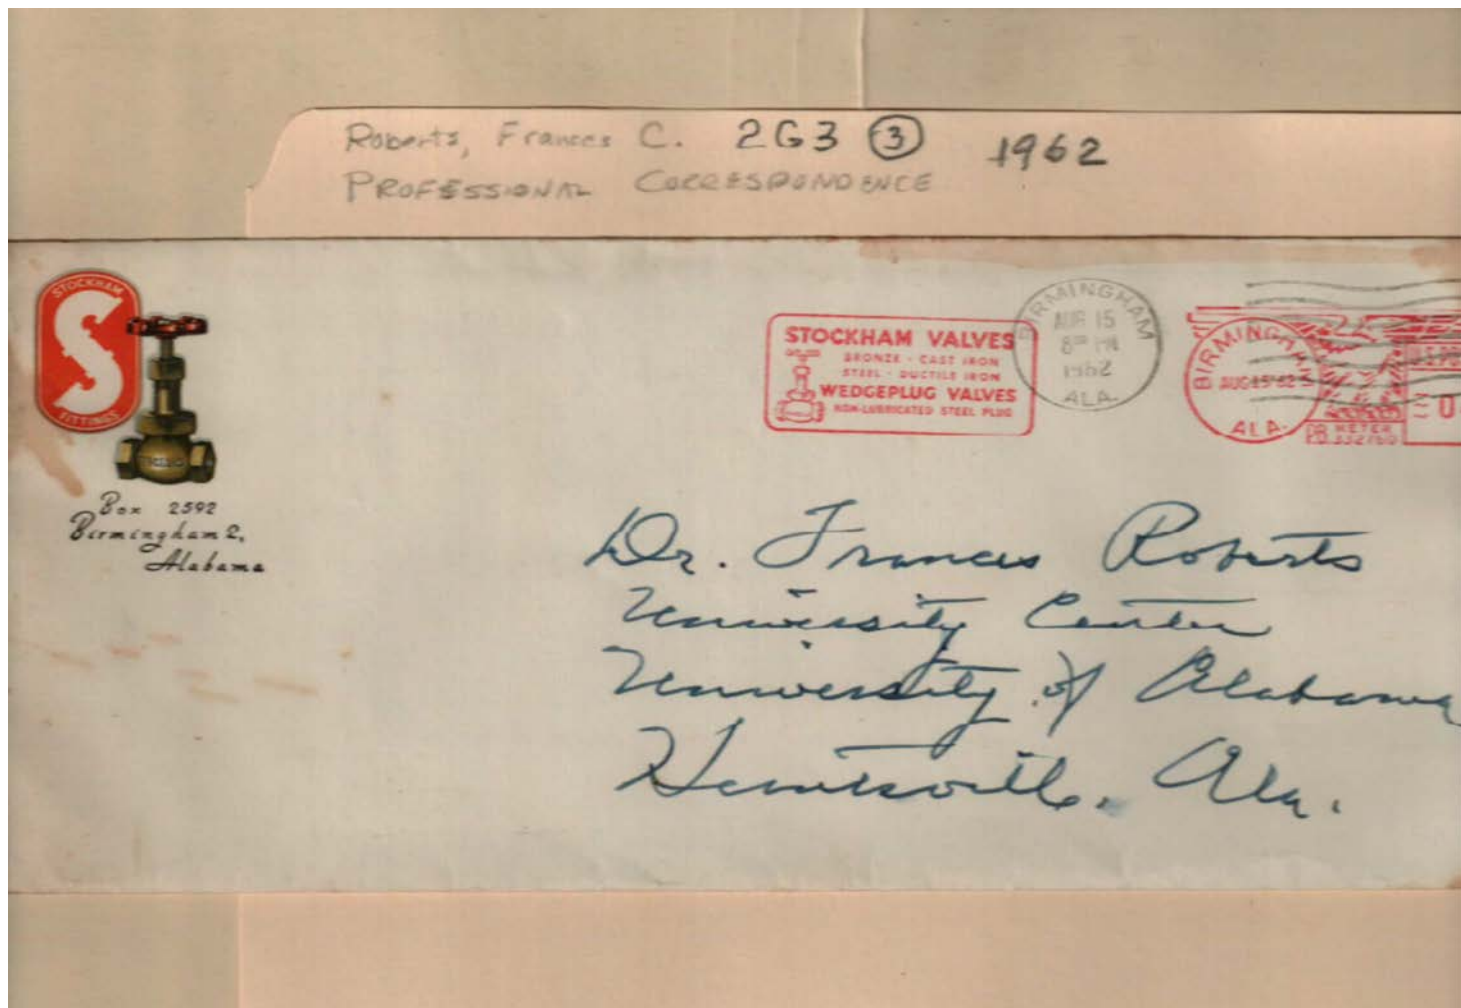 Roberts, Frances C. 2G3 ③ 1962
PROFESSIONAL CORRESPONDENCE
STOCKHAM
FITTINGS
Box 2592
Birmingham 2,
Alabama
STOCKHAM VALVES
BRONZE - CAST IRON
STEEL - DUCTILE IRON
WEDGEPLUG VALVES
NON-LUBRICATED STEEL PLUG
BIRMINGHAM
AUG 15
8 PM
1962
ALA.
BIRMINGHAM
AUG 15'62
ALA.
P.B. METER
332760
Dr. Frances Roberts
University Center
University of Alabama
Huntsville, Ala.